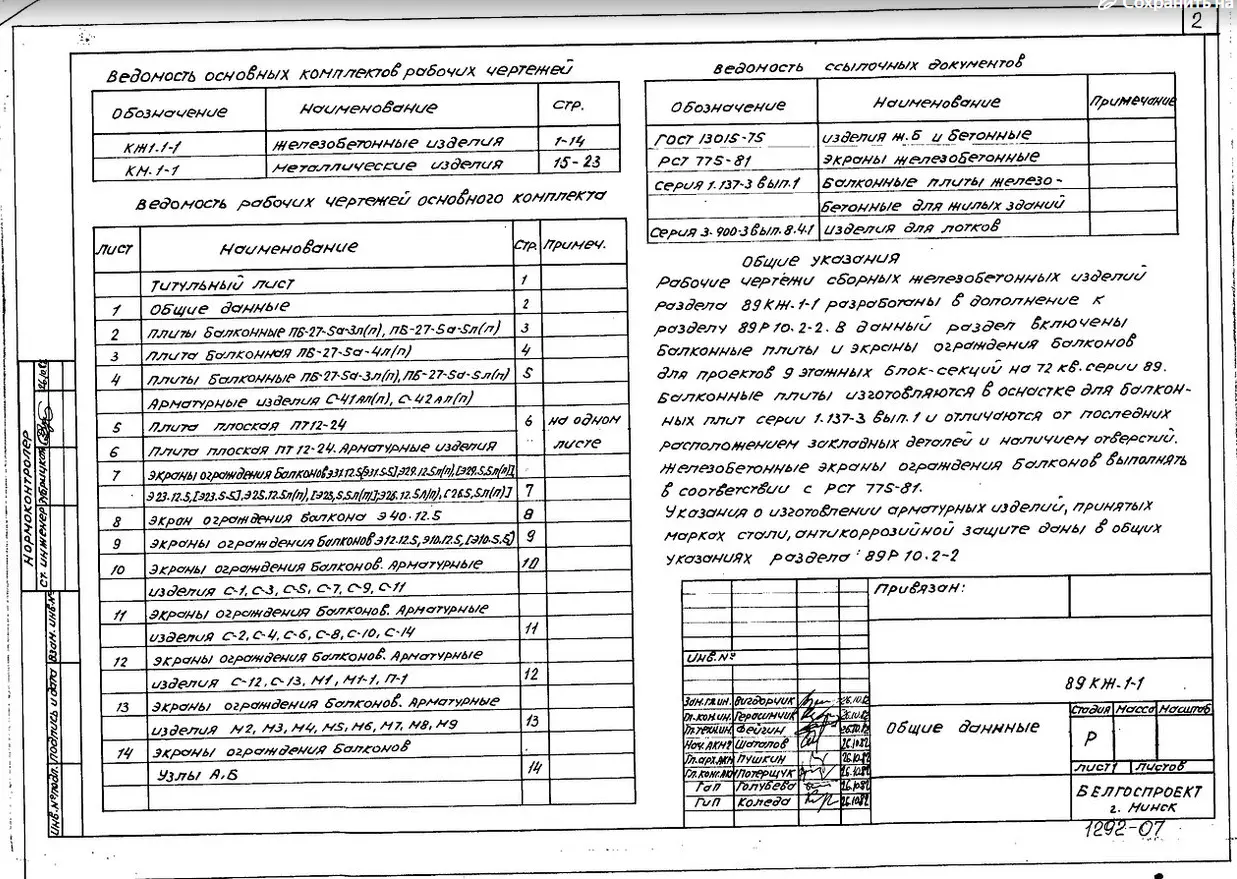 Сохранить на
2
Ведомость основных комплектов рабочих чертежей
Обозначение Наименование Стр.
КЖ1.1-1 Железобетонные изделия 1-14
КМ.1-1 Металлические изделия 15-23
Ведомость рабочих чертежей основного комплекта
Лист Наименование Стр. Примеч.
Титульный лист 1
1 Общие данные 2
2 Плиты балконные ПБ-27-5а-3л(п), ПБ-27-5а-5л(п) 3
3 Плита балконная ПБ-27-5а-4л(п) 4
4 Плиты балконные ПБ-27-5а-3л(п), ПБ-27-5а-5л(п) 5
Арматурные изделия С-41ал(п), С-42ал(п)
5 Плита плоская ПТ12-24 6 на одном
6 Плита плоская ПТ12-24. Арматурные изделия листе
7 Экраны ограждения балконов
7
8 Экран ограждения балкона Э40.12.5 8
9 Экраны ограждения балконов Э12-12.5, Э10.12.5, [Э10-5.5] 9
10 Экраны ограждения балконов. Арматурные 10
изделия С-1, С-3, С-5, С-7, С-9, С-11
11 Экраны ограждения балконов. Арматурные
изделия С-2, С-4, С-6, С-8, С-10, С-14 11
12 Экраны ограждения балконов. Арматурные
изделия С-12, С-13, М1, М1-1, П-1 12
13 Экраны ограждения балконов. Арматурные
изделия М2, М3, М4, М5, М6, М7, М8, М9 13
14 Экраны ограждения балконов
Узлы А,Б 14
Ведомость ссылочных документов
Обозначение Наименование Примечание
ГОСТ 13015-75 изделия ж.б и бетонные
РСТ 775-81 Экраны железобетонные
Серия 1.137-3 вып.1 Балконные плиты железо-
бетонные для жилых зданий
Серия 3-900-3 вып. 8.4.1 изделия для лотков
Общие указания
Рабочие чертежи сборных железобетонных изделий
раздела 89КЖ.1-1 разработаны в дополнение к
разделу 89Р10.2-2. В данный раздел включены
балконные плиты и экраны ограждения балконов
для проектов 9 этажных блок-секций на 72 кв. серии 89.
Балконные плиты изготовляются в оснастке для балкон-
ных плит серии 1.137-3 вып.1 и отличаются от последних
расположением закладных деталей и наличием отверстий.
Железобетонные экраны ограждения балконов выполнять
в соответствии с РСТ 775-81.
Указания о изготовлении арматурных изделий, принятых
марках стали, антикоррозийной защите даны в общих
указаниях раздела 89Р10.2-2
Привязан:
Инв.№
89КЖ.1-1
Зам.гл.ин. Вигдорчик 26.10.82
Гл.кон.ин. Герасимчик 26.10.82
Гл.техн.ин. Фейгин 26.10.82
Нач.АКМ2 Шаталов 26.10.82
Гл.арх.АКМ Пушкин 26.10.82
Гл.конс.АКМ Потерщук 26.10.82
Гап Голубева 26.10.82
Гип Коледа 26.10.82
Общие данные
Стадия Масса Масштаб
Р
Лист 1 Листов
БЕЛГОСПРОЕКТ
г. Минск
1292-07
Нормоконтролер
Ст. инженер
Инв.№ подл. Подпись и дата Взам. инв.№